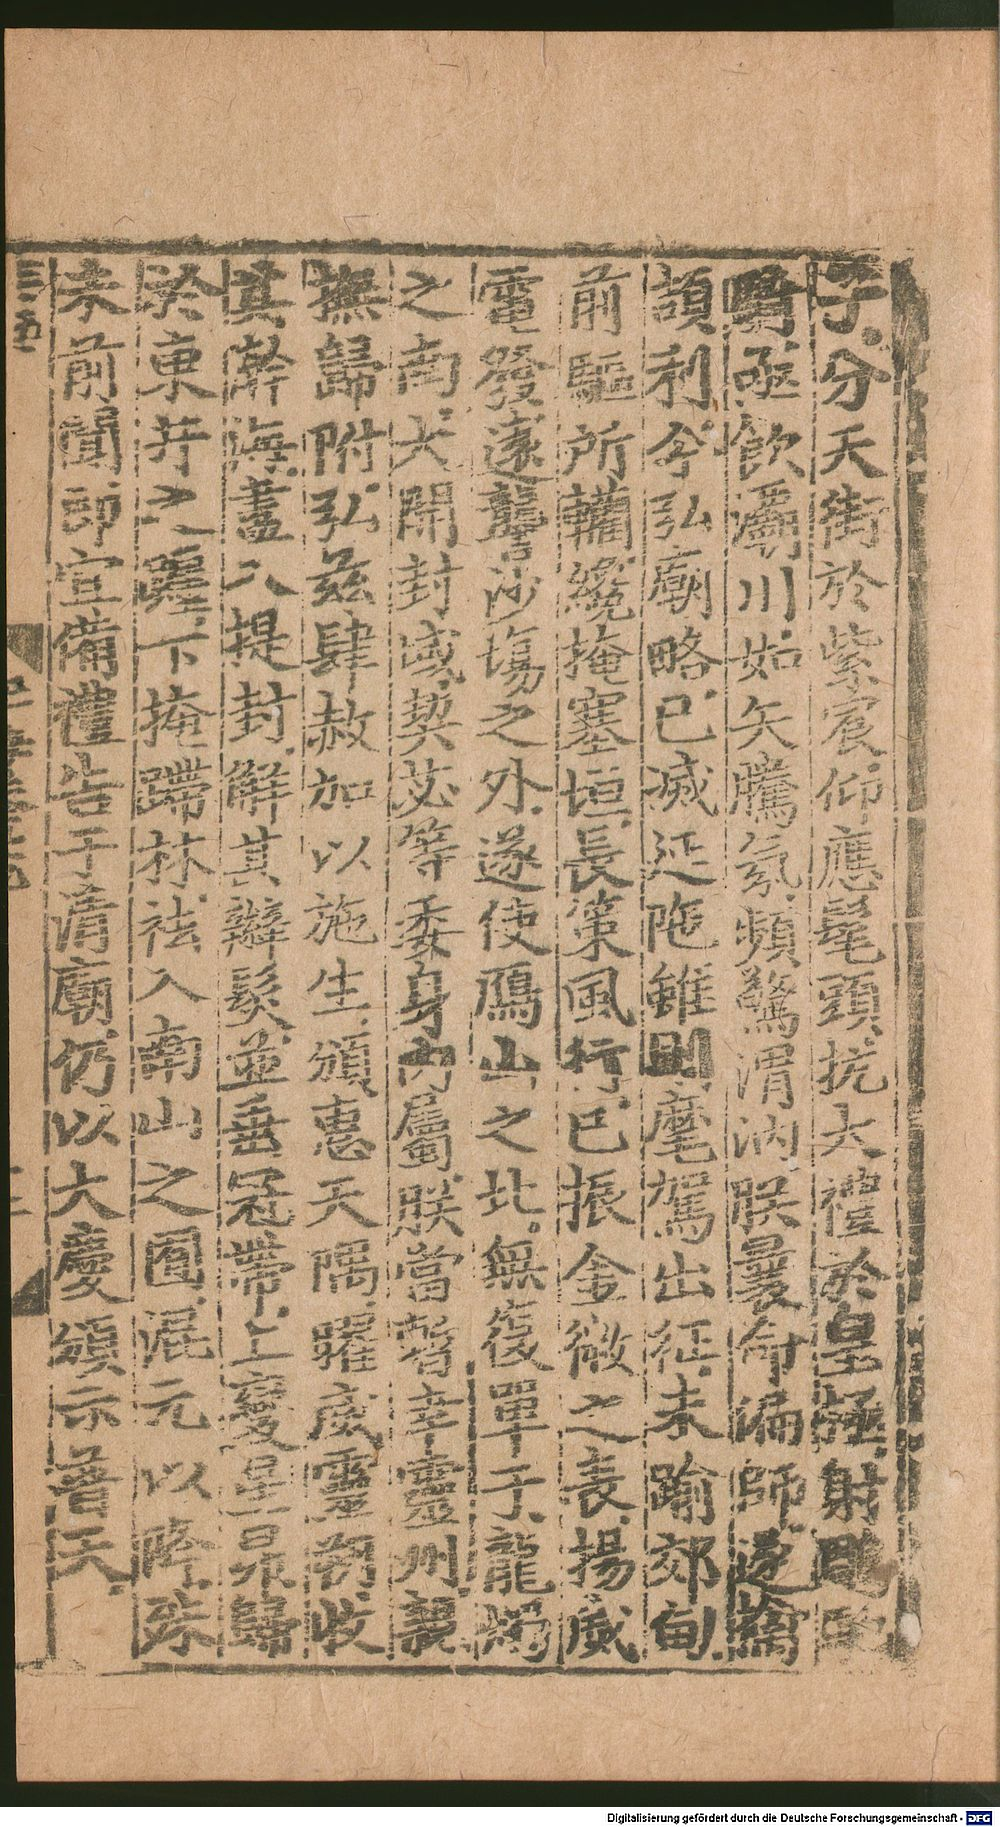 子.分天街於紫宸.仰應髦頭.抗大禮於皇極.射鵰
騎.亟飲灞川.如矢騰氛.頻驚渭汭.朕曩命偏師.遂擒
頡利.今弘廟略.已滅延陁.雖則麾駕出征.未踰郊甸.
前驅所轥.纔掩塞垣.長策風行.已振金微之表.揚威
電發.遠讋沙塲之外.遂使鴈山之北.無復單于.龍燭
之南.大開封域.契苾等委身內屬.朕當暫幸靈州.親
撫歸附.弘茲肆赦.加以施生.頒惠天隅.躍威靈朔.收
其瀚海.畫入提封.解其辮髮.並垂冠帶.上變星昴.歸
於東井之躔.下掩蹛林.袪入南山之囿.混元以降.殊
未前聞.即宜備禮告于清廟.仍以大慶頒示普天.
Digitalisierung gefördert durch die Deutsche Forschungsgemeinschaft - DFG